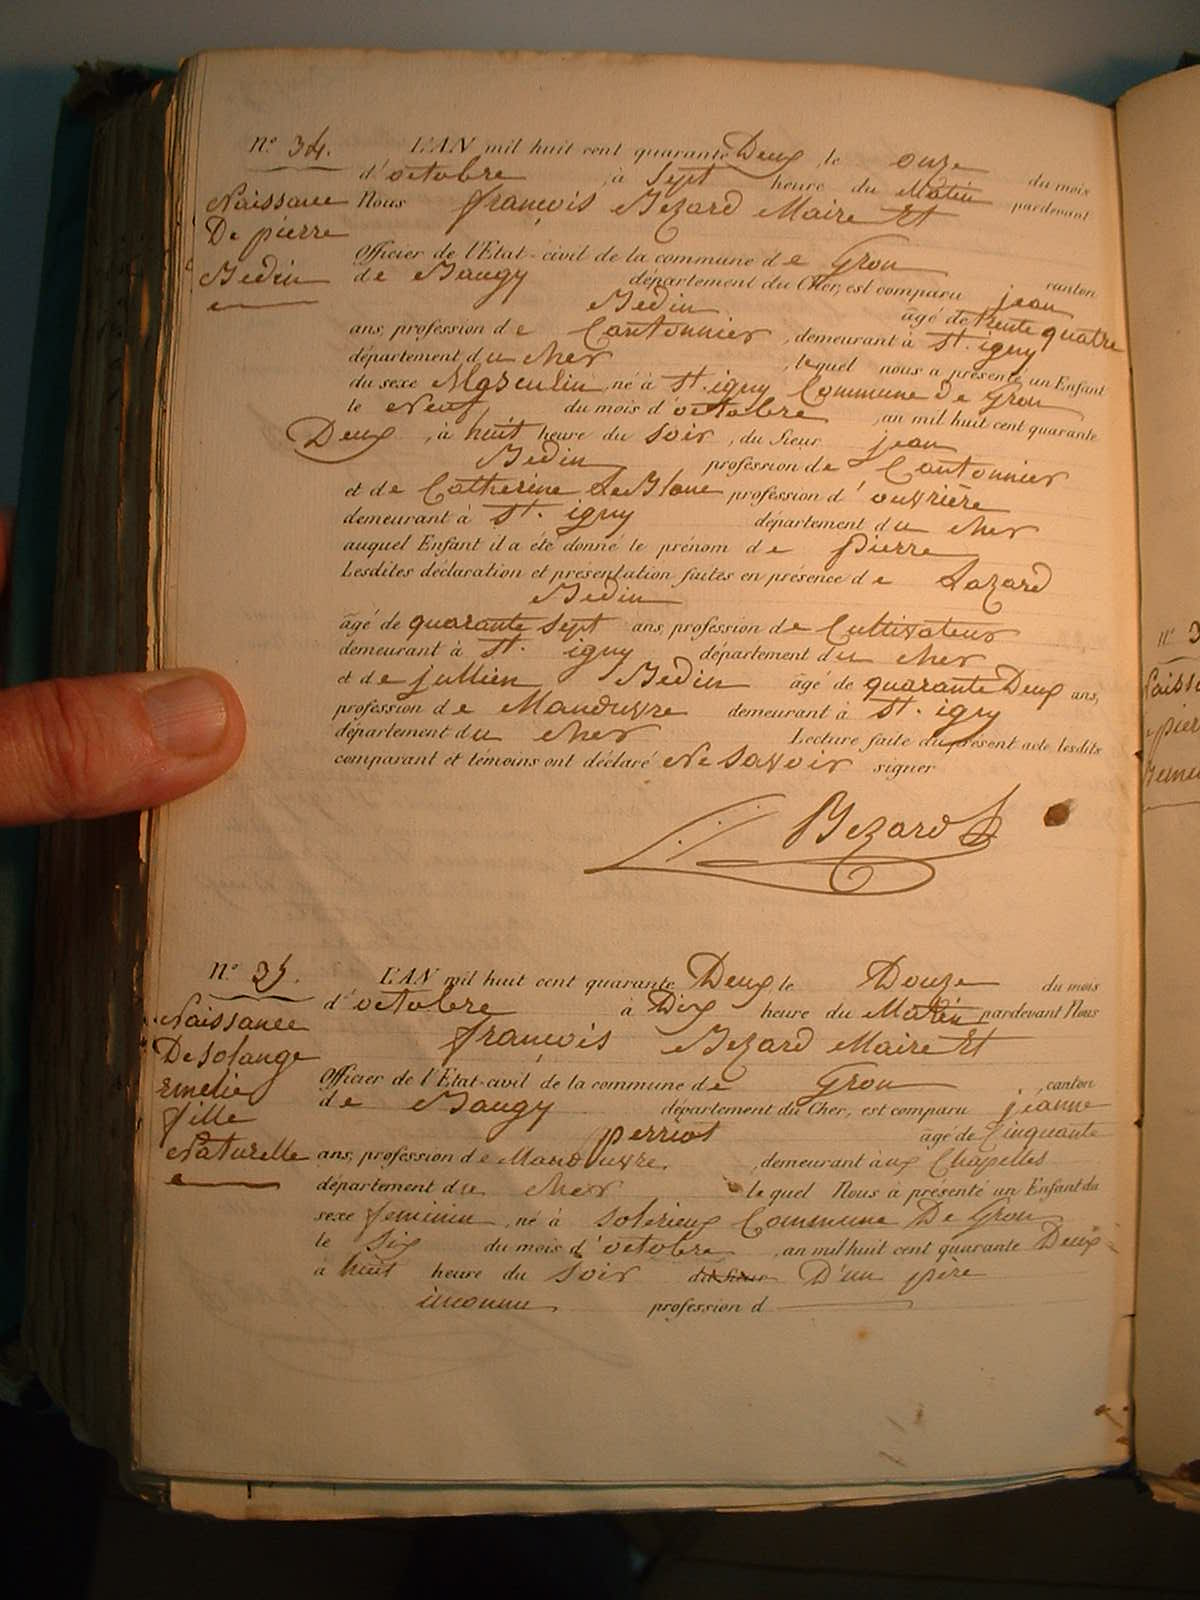 N.° 34.
Naissance
De pierre
Bedin
L'AN mil huit cent quarante Deux, le onze du mois
d'octobre, à Sept heure du Matin pardevant
Nous françois Bezard Maire Et
Officier de l'Etat-civil de la commune de Gron canton
de Baugy département du Cher, est comparu jean
Bedin âgé de trente quatre
ans, profession de Cantonnier, demeurant à St. igny
département du cher, lequel nous a présenté un Enfant
du sexe Masculin, né à St. igny Commune De Gron
le Neuf, du mois d'octobre, an mil huit cent quarante
Deux, à huit heure du Soir, du Sieur jean
Bedin profession de Cantonnier
et de Catherine LeBlanc profession d'ouvrière
demeurant à St. igny département du cher
auquel Enfant il a été donné le prénom de pierre
Lesdites déclaration et présentation faites en présence de Lazard
Bedin
âgé de quarante Sept ans, profession de Cultivateur
demeurant à St. igny département du cher
et de jullien Bedin âgé de quarante Deux ans,
profession de Manduvre demeurant à St. igny
département du cher Lecture faite du présent acte, lesdits
comparant et témoins ont déclaré Ne Savoir signer
Bezard
N.° 35.
Naissance
De Solange
Emelie
fille
Naturelle
L'AN mil huit cent quarante Deux, le Douze du mois
d'octobre à Dix heure du Matin pardevant Nous
françois Bezard Maire Et
Officier de l'Etat-civil de la commune de Gron, canton
de Baugy département du Cher, est comparu jeanne
perriot âgé de Cinquante
ans, profession de Manduvre, demeurant àux Chapelles
département du cher lequel Nous à présenté un Enfant du
sexe feminin, né à Solerieux Commune De Gron
le Six du mois d'octobre, an mil huit cent quarante Deux
à huit heure du Soir du Sieur D'un père
inconnu profession d
N.° 3